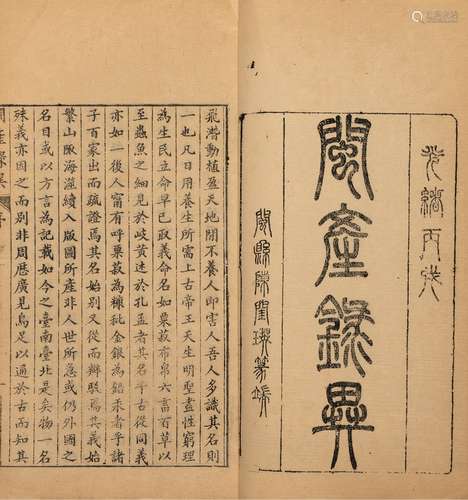 光緒丙戌
閩產錄異
閩縣陳
篆端
飛潛動植盈天地間不養人即害人吾人多識其名則
一也凡日用養生所需上古帝王天生明聖盡性窮理
為生民立命早已取義命名如粟菽布帛六畜百草以
至蟲魚之細見於岐黃述於孔孟者其名乎古從同義
亦如一後人甯有呼粟菽為糠秕金銀為鉛汞者乎諸
子百家出而疏證焉其名始別又從而辯駁焉其義始
繁山陬海澨續入版圖所產非人世所急或仍外國之
名目或以方言為記載如今之臺南臺北是矣物一名
殊義亦因之而別非周歷廣見烏足以通於古而知其
閩產錄異 序